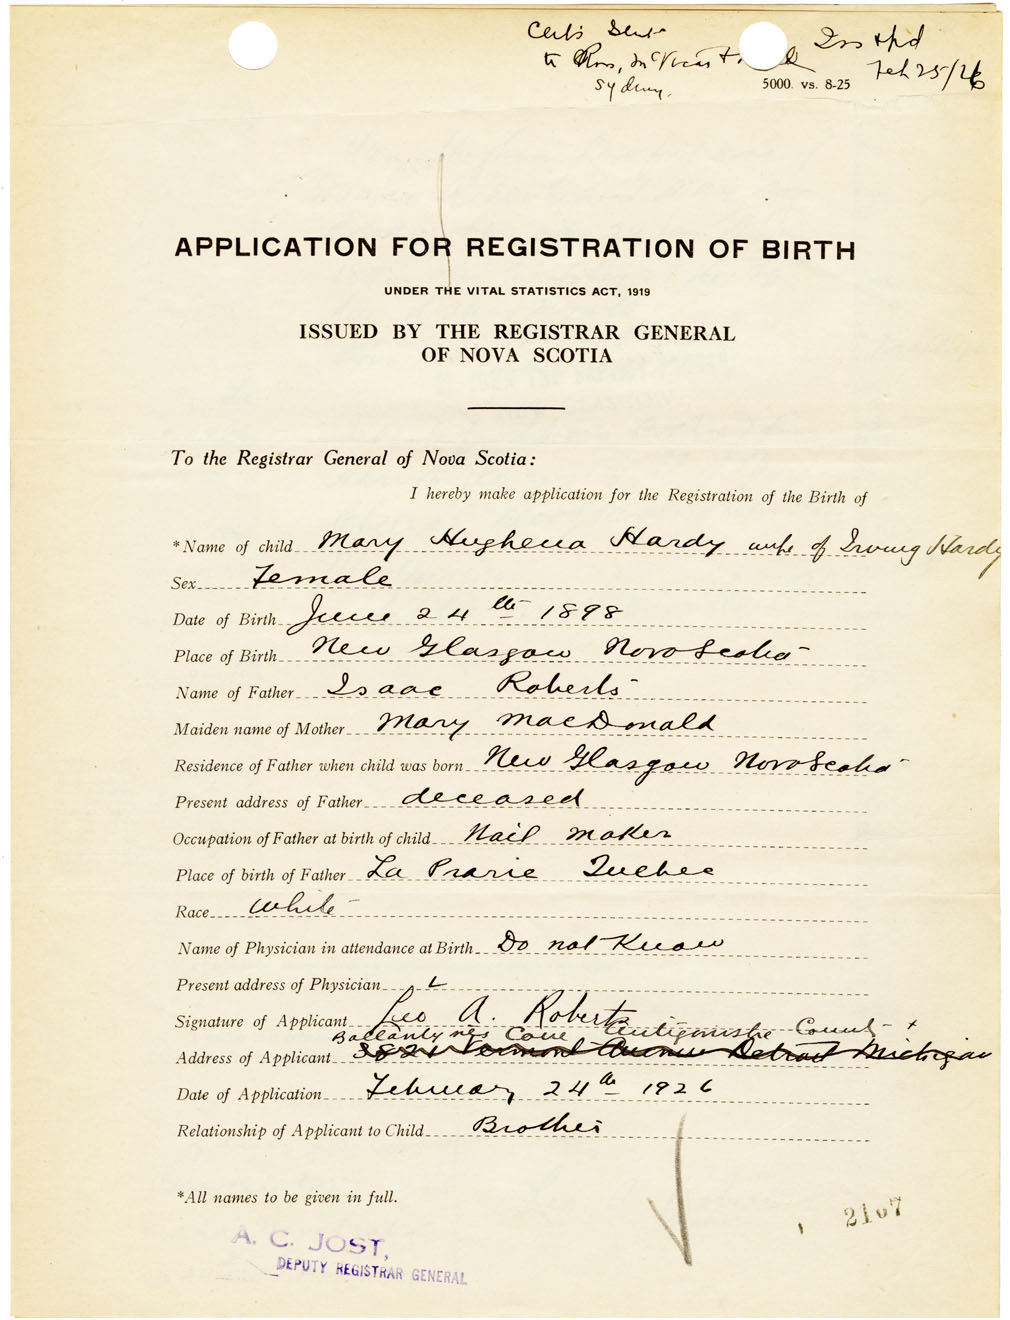 Certs Sent
to Ross, McVicar +
Sydney.
Ins + pd
Feb 25/26
5000. vs. 8-25
APPLICATION FOR REGISTRATION OF BIRTH
UNDER THE VITAL STATISTICS ACT, 1919
ISSUED BY THE REGISTRAR GENERAL
OF NOVA SCOTIA
To the Registrar General of Nova Scotia:
I hereby make application for the Registration of the Birth of
*Name of child Mary Hughena Hardy wife of Irving Hardy
Sex Female
Date of Birth June 24th 1898
Place of Birth New Glasgow Nova Scotia
Name of Father Isaac Roberts
Maiden name of Mother Mary MacDonald
Residence of Father when child was born New Glasgow Nova Scotia
Present address of Father deceased
Occupation of Father at birth of child Nail maker
Place of birth of Father La Prarie Quebec
Race White
Name of Physician in attendance at Birth Do not Know
Present address of Physician
Signature of Applicant Leo A. Roberts
Ballantynes Cove Antigonishe County
Address of Applicant 3821 Vermont Avenue Detroit Michigan
Date of Application February 24th 1926
Relationship of Applicant to Child Brother
*All names to be given in full.
2167
A. C. JOST,
DEPUTY REGISTRAR GENERAL